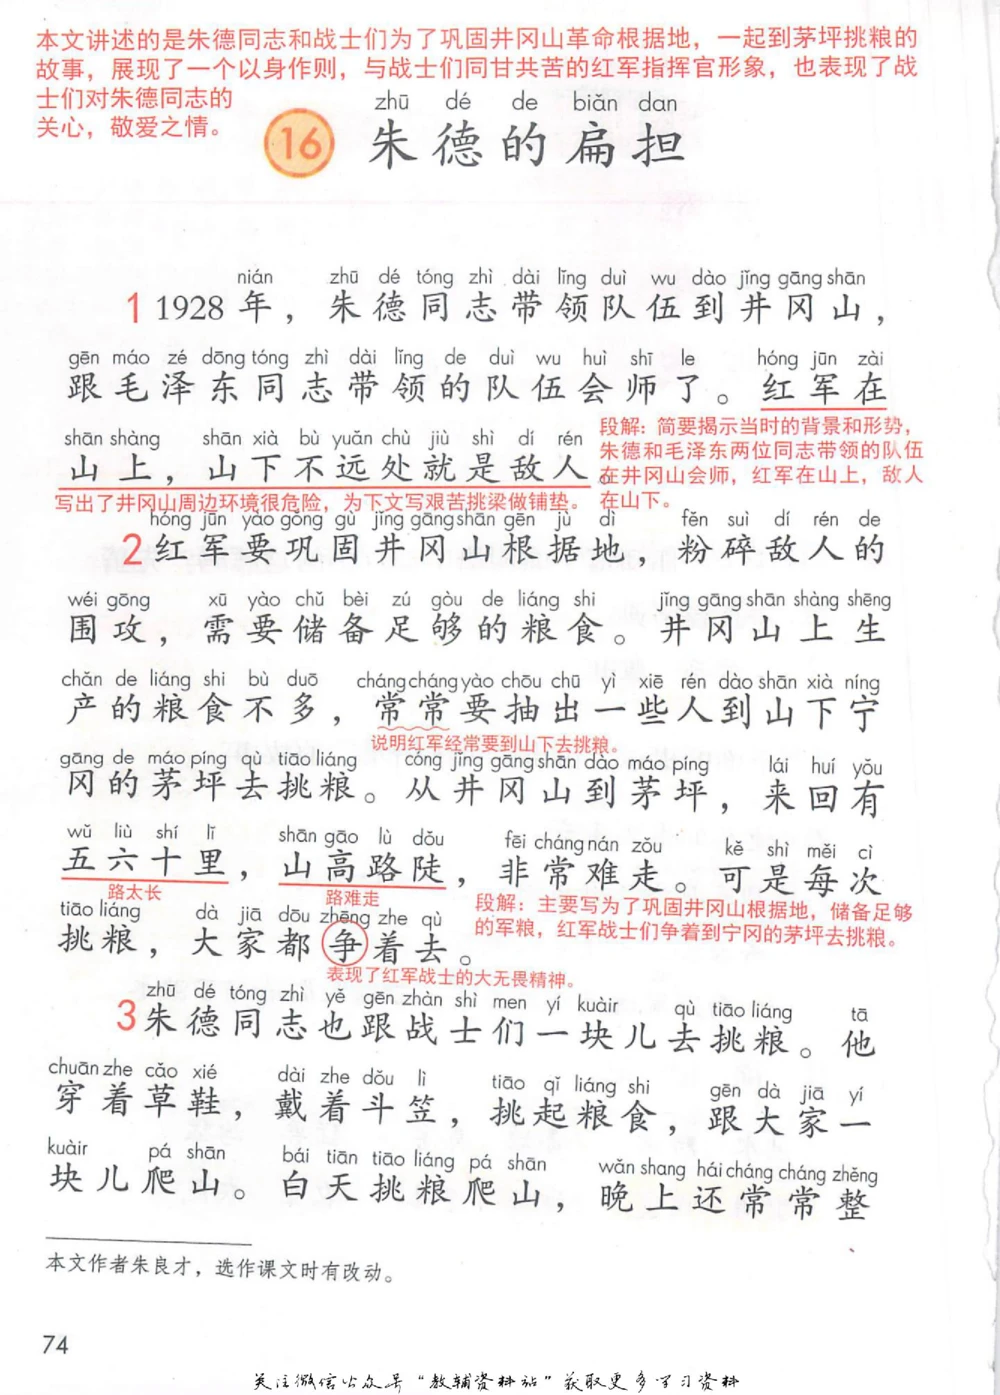 本文讲述的是朱德同志和战士们为了巩固井冈山革命根据地，一起到茅坪挑粮的
故事，展现了一个以身作则，与战士们同甘共苦的红军指挥官形象，也表现了战
士们对朱德同志的
关心，敬爱之情。
zhū dé de biǎn dan
16 朱德的扁担
nián zhū dé tóng zhì dài lǐng duì wu dào jǐng gāng shān
1 1928 年，朱德同志带领队伍到井冈山，
gēn máo zé dōng tóng zhì dài lǐng de duì wu huì shī le hóng jūn zài
跟毛泽东同志带领的队伍会师了。红军在
shān shàng shān xià bù yuǎn chù jiù shì dí rén
山上，山下不远处就是敌人。
段解：简要揭示当时的背景和形势，
朱德和毛泽东两位同志带领的队伍
在井冈山会师，红军在山上，敌人
在山下。
写出了井冈山周边环境很危险，为下文写艰苦挑梁做铺垫。
hóng jūn yào gǒng gù jǐng gāng shān gēn jù dì fěn suì dí rén de
2 红军要巩固井冈山根据地，粉碎敌人的
wéi gōng xū yào chǔ bèi zú gòu de liáng shi jǐng gāng shān shàng shēng
围攻，需要储备足够的粮食。井冈山上生
chǎn de liáng shi bù duō cháng cháng yào chōu chū yì xiē rén dào shān xià níng
产的粮食不多，常常要抽出一些人到山下宁
说明红军经常要到山下去挑粮。
gāng de máo píng qù tiāo liáng cóng jǐng gāng shān dào máo píng lái huí yǒu
冈的茅坪去挑粮。从井冈山到茅坪，来回有
wǔ liù shí lǐ shān gāo lù dǒu fēi cháng nán zǒu kě shì měi cì
五六十里，山高路陡，非常难走。可是每次
路太长 路难走
段解：主要写为了巩固井冈山根据地，储备足够
的军粮，红军战士们争着到宁冈的茅坪去挑粮。
tiāo liáng dà jiā dōu zhēng zhe qù
挑粮，大家都争着去。
表现了红军战士的大无畏精神。
zhū dé tóng zhì yě gēn zhàn shì men yí kuàir qù tiāo liáng tā
3 朱德同志也跟战士们一块儿去挑粮。他
chuān zhe cǎo xié dài zhe dǒu lì tiāo qǐ liáng shi gēn dà jiā yí
穿着草鞋，戴着斗笠，挑起粮食，跟大家一
kuàir pá shān bái tiān tiāo liáng pá shān wǎn shang hái cháng cháng zhěng
块儿爬山。白天挑粮爬山，晚上还常常整
本文作者朱良才，选作课文时有改动。
74
关注微信公众号“教辅资料站”获取更多学习资料